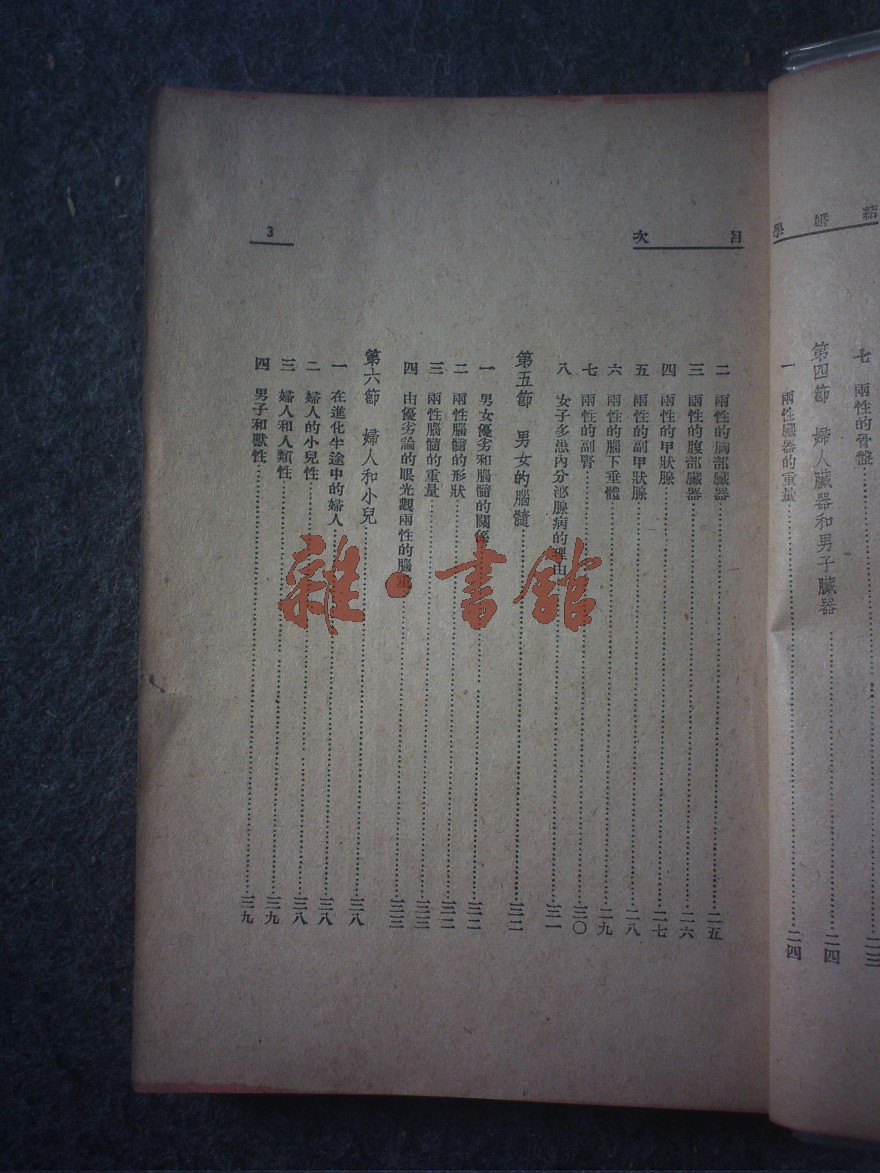 結婚學
七 兩性的骨盤……二三
第四節 婦人臟器和男子臟器……二四
一 兩性臟器的重量……二四
目次
二 兩性的胸部臟器……二五
三 兩性的腹部臟器……二六
四 兩性的甲狀腺……二七
五 兩性的副甲狀腺……二八
六 兩性的腦下垂體……二九
七 兩性的副腎……三〇
八 女子多患內分泌腺病的理由……三一
第五節 男女的腦髓……三二
一 男女優劣和腦髓的關係……三二
二 兩性腦髓的形狀……三二
三 兩性腦髓的重量……三三
四 由優劣論的眼光觀兩性的腦……三三
第六節 婦人和小兒……三八
一 在進化半途中的婦人……三八
二 婦人的小兒性……三八
三 婦人和人類性……三九
四 男子和獸性……三九
3
雜·書館